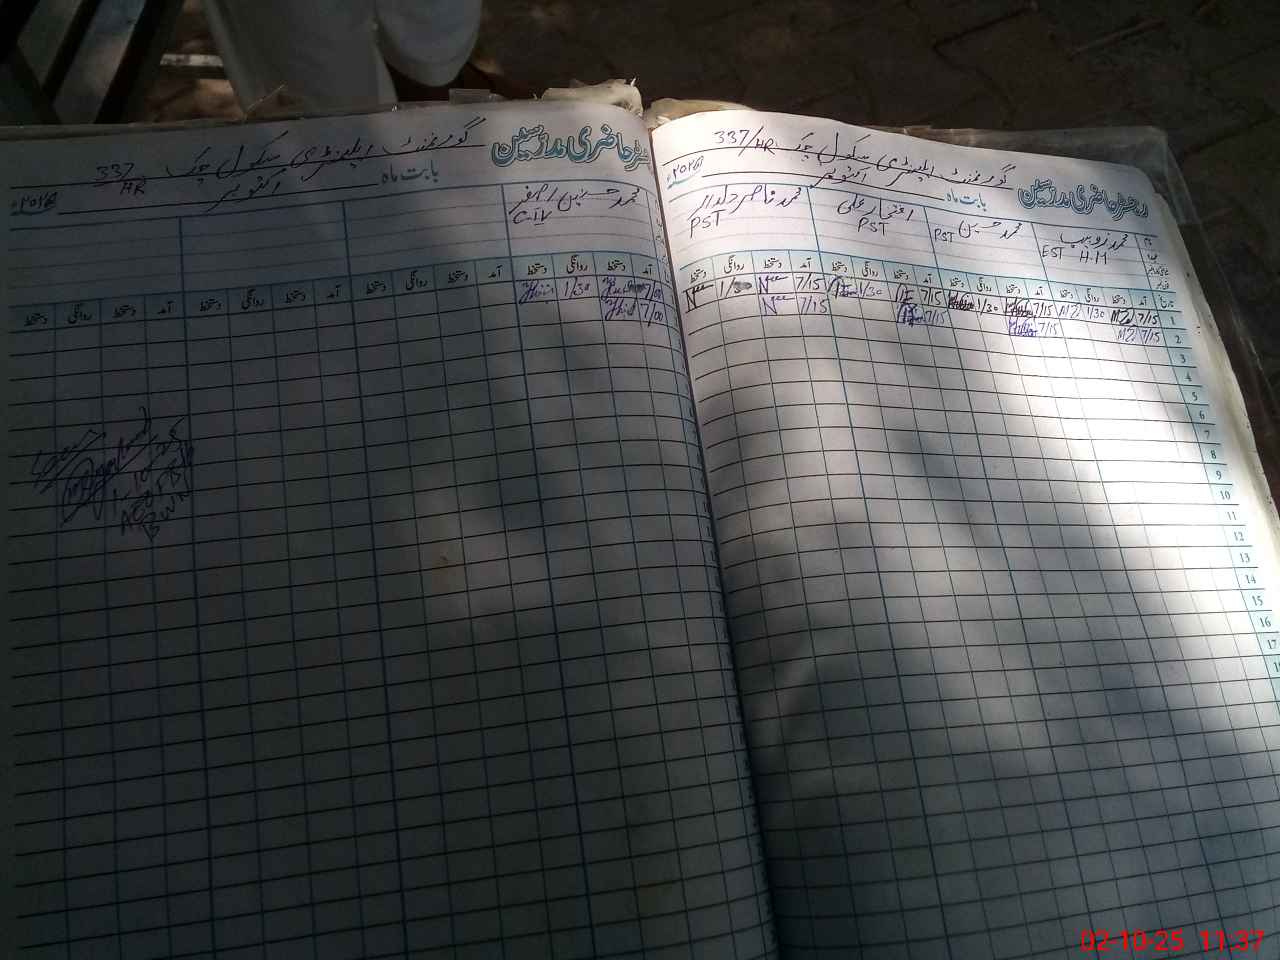 رجسٹر حاضری مدرسین
گورنمنٹ ایلیمنٹری سکول چک 337/HR
بابت ماہ اکتوبر ۲۰۲۵ء
محمد زوہیب
EST H.M
محمد حسین PST
افتخار علی
PST
محمد ناصر دلدار
PST
تاریخ آمد دستخط روانگی دستخط آمد دستخط روانگی دستخط آمد دستخط روانگی دستخط آمد دستخط روانگی دستخط
1 7/15 MZ 1/30 MZ 7/15 1/30 7/15 1/30 7/15 1/30
2 7/15 MZ 7/15 7/15 7/15
3
4
5
6
7
8
9
10
11
12
13
14
15
16
17
18
رجسٹر حاضری مدرسین
گورنمنٹ ایلیمنٹری سکول چک 337/HR
بابت ماہ اکتوبر ۲۰۲۵ء
محمد حسین
C-IV
آمد دستخط روانگی دستخط آمد دستخط روانگی دستخط آمد دستخط روانگی دستخط آمد دستخط روانگی دستخط
7/00 1/30
7/00
1-10-25
BWN
02-10-25 11:37